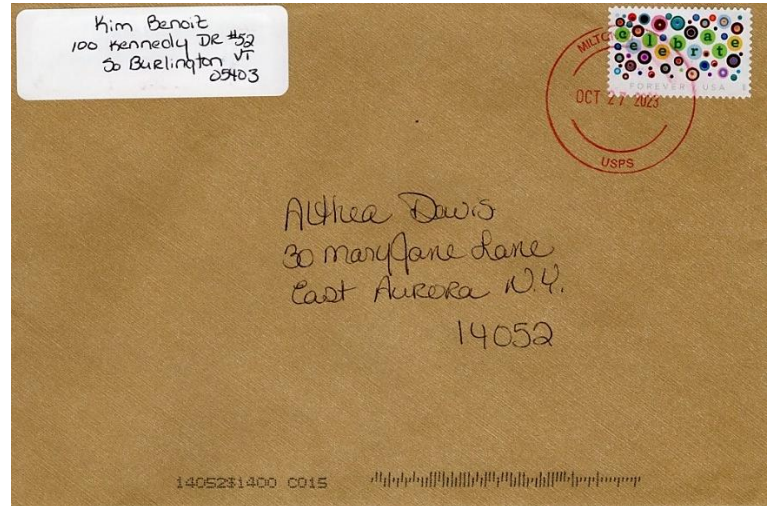 Kim Benoit
100 Kennedy DR #52
So Burlington VT
05403
celebrate
FOREVER USA
OCT 27 2023
USPS
Althea Davis
30 Mary Jane Lane
East Aurora N.Y.
14052
14052$1400 C015